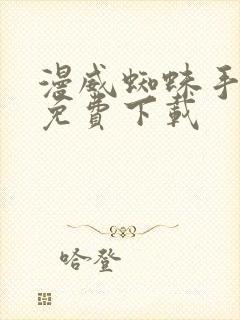 漫威蜘蛛手
免費下載
哈登